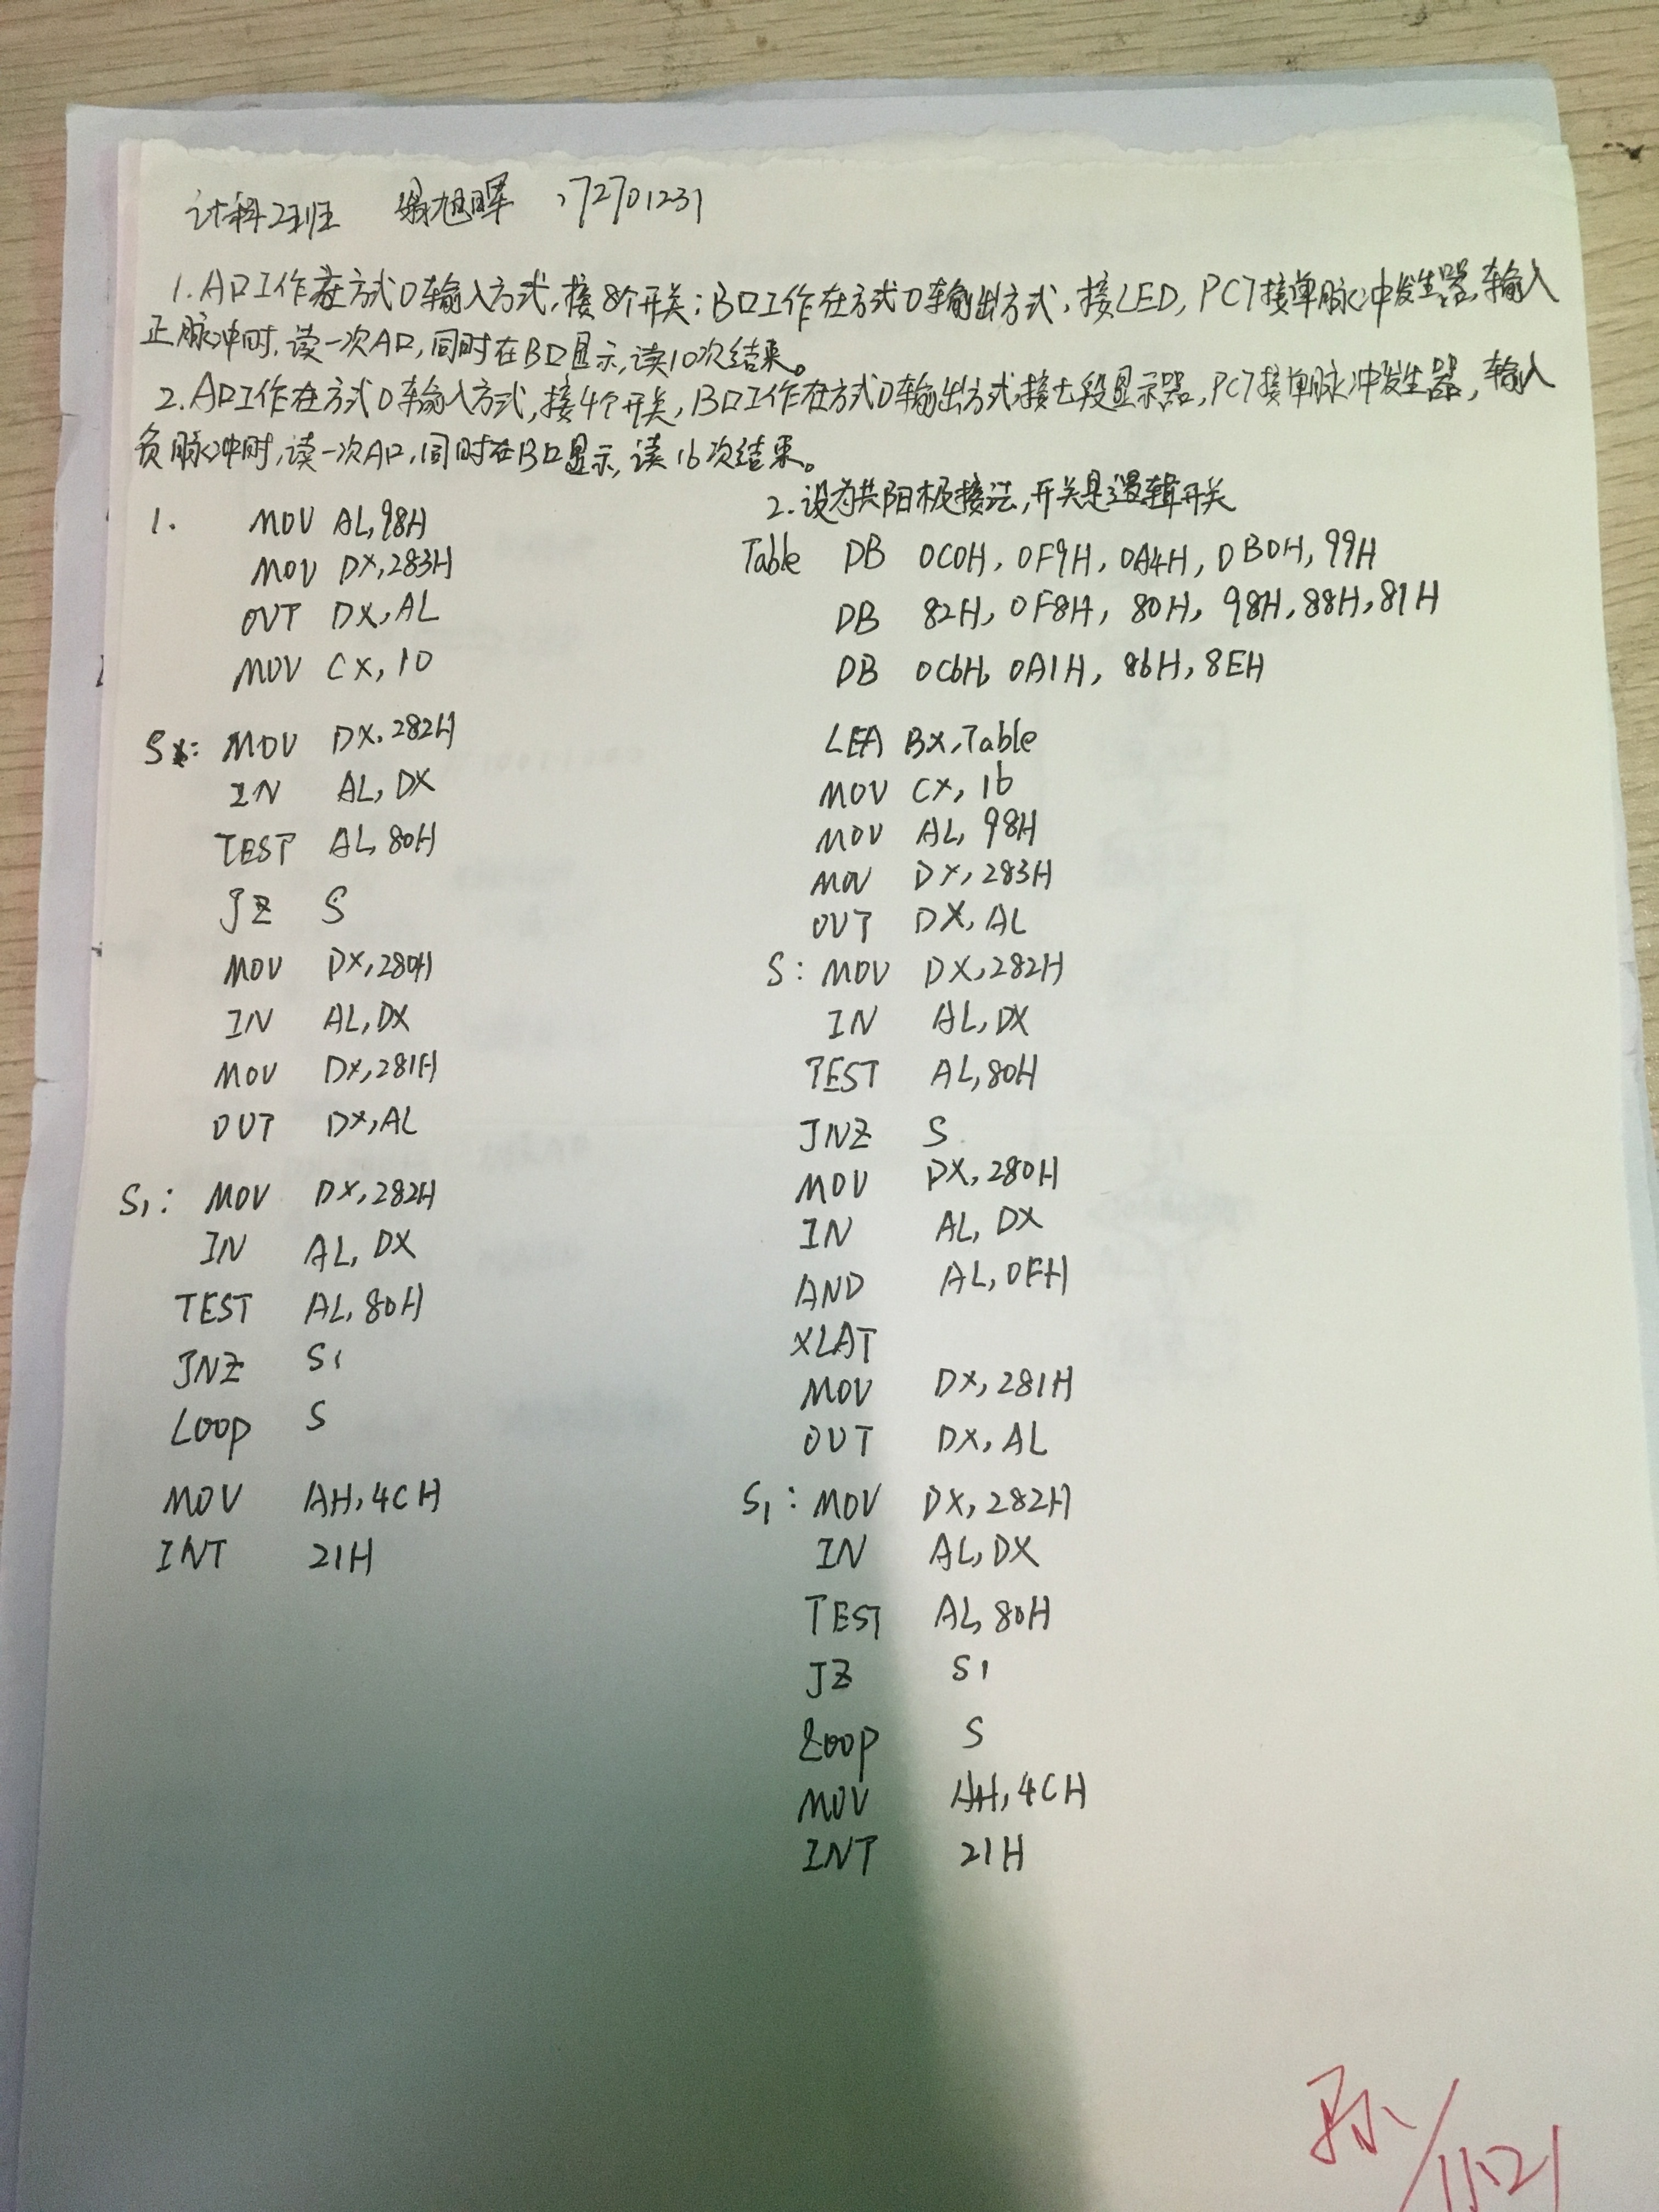 计科2班 旭晖 172701231
1.A口工作在方式0输入方式,接8个开关;B口工作在方式0输出方式,接LED,PC7接单脉冲发生器,输入
正脉冲时,读一次A口,同时在B口显示,读10次结果。
2.A口工作在方式0输入方式,接4个开关,B口工作在方式0输出方式接七段显示器,PC7接单脉冲发生器,输入
负脉冲时,读一次A口,同时在B口显示,读16次结果。
1. MOV AL,98H
MOV DX,283H
OUT DX,AL
MOV CX,10
S: MOV DX,282H
IN AL,DX
TEST AL,80H
JZ S
MOV DX,280H
IN AL,DX
MOV DX,281H
OUT DX,AL
S1: MOV DX,282H
IN AL,DX
TEST AL,80H
JNZ S1
Loop S
MOV AH,4CH
INT 21H
2.设为共阳极接法,开关是逻辑开关
Table DB 0C0H,0F9H,0A4H,0B0H,99H
DB 82H,0F8H,80H,98H,88H,81H
DB 0C6H,0A1H,86H,8EH
LEA BX,Table
MOV CX,16
MOV AL,98H
MOV DX,283H
OUT DX,AL
S: MOV DX,282H
IN AL,DX
TEST AL,80H
JNZ S
MOV DX,280H
IN AL,DX
AND AL,0FH
XLAT
MOV DX,281H
OUT DX,AL
S1: MOV DX,282H
IN AL,DX
TEST AL,80H
JZ S1
Loop S
MOV AH,4CH
INT 21H
11.21